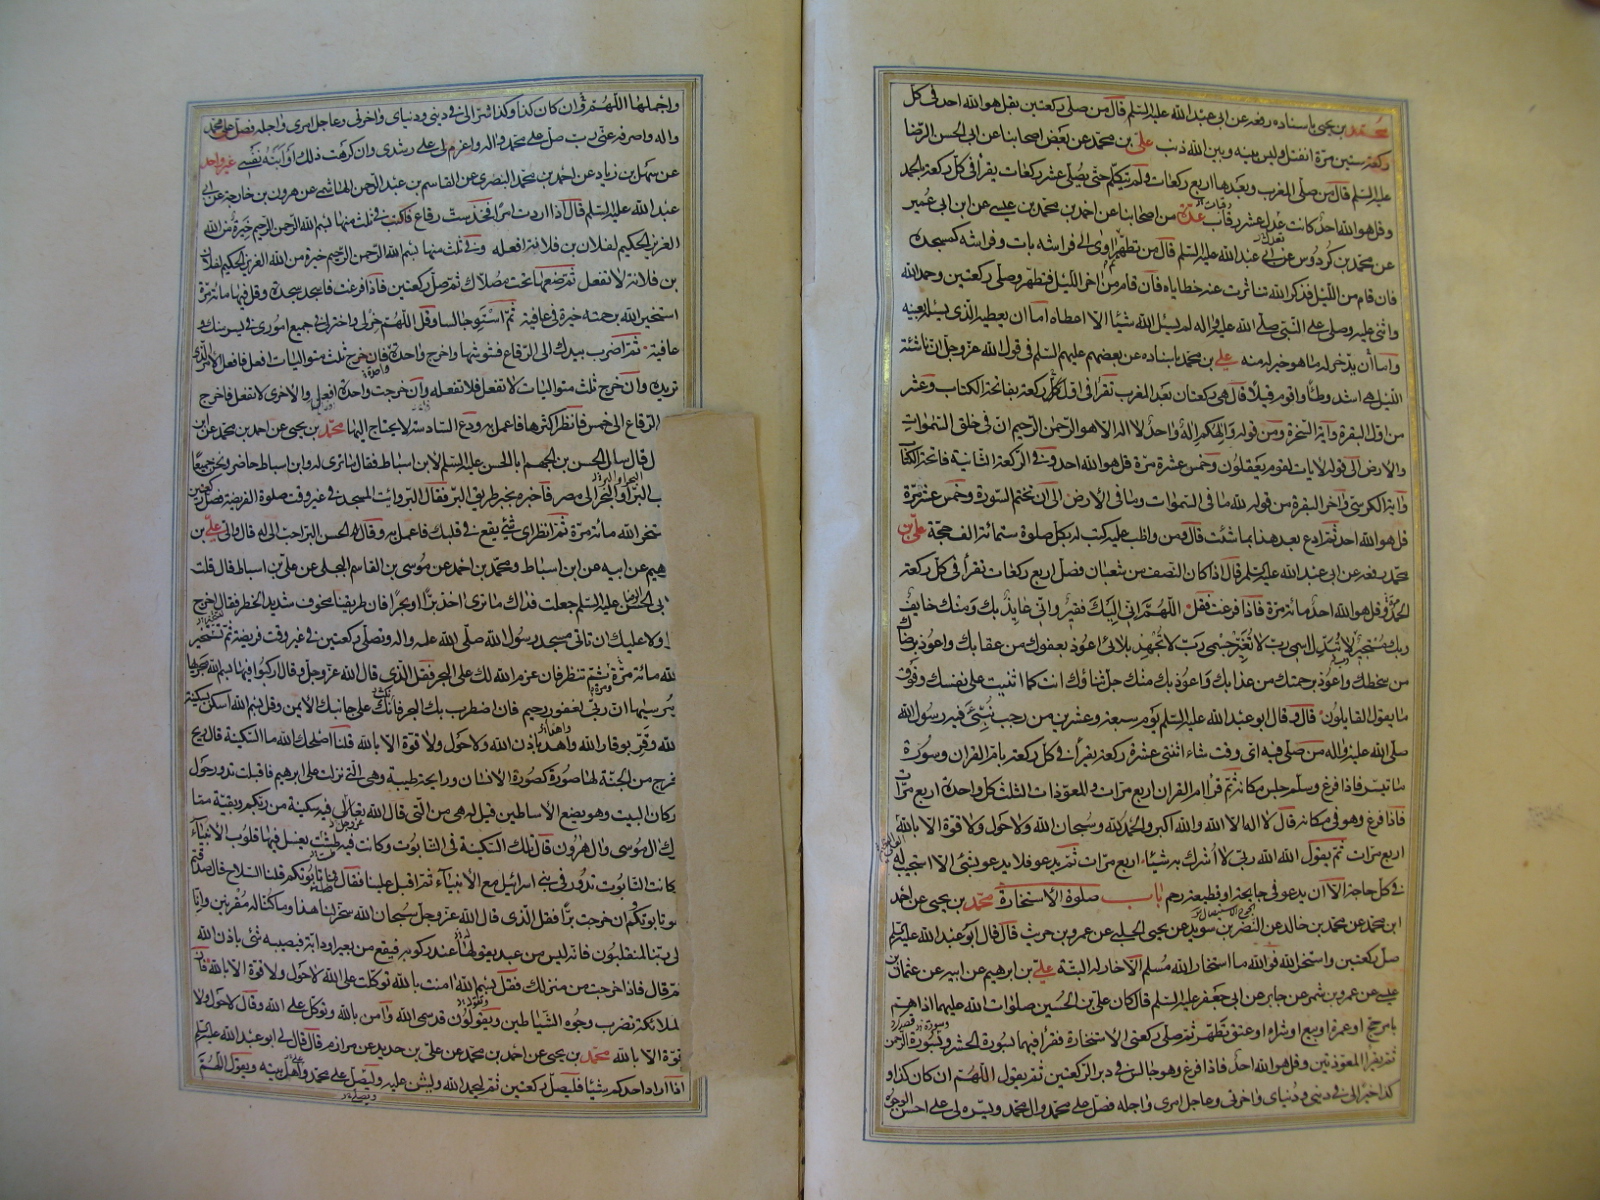 محمد بن يحيى باسناده رفعه عن ابى عبد الله عليه السلم قال من صلى ركعتين بقل هو الله احد فى كل
ركعة ستين مرة انفتل وليس بينه وبين الله ذنب على بن محمد عن بعض اصحابنا عن ابى الحسن الرضا
عليه السلم قال من صلى المغرب وبعدها اربع ركعات ولم يتكلم حتى يصلى عشر ركعات يقرأ فى كل ركعة بالحمد
وقل هو الله احد كانت عدل عشر رقاب عدة من اصحابنا عن احمد بن محمد بن عيسى عن ابن ابى عمير
عن محمد بن كردوس عن ابى عبد الله عليه السلم قال من تطهر ثم اوى الى فراشه بات وفراشه كمسجده
فان قام من الليل فذكر الله تناثرت عنه خطاياه فان قام من اخر الليل فتطهر وصلى ركعتين وحمد الله
واثنى عليه وصلى على النبى صلى الله عليه واله لم يسئل الله شيئا الا اعطاه اما ان يعطيه الذى يسئله بعينه
واما ان يدخر له ما هو خير له منه على بن محمد باسناده عن بعضهم عليهم السلم فى قول الله عز وجل ان ناشئة
الليل هى اشد وطأ واقوم قيلا قال هى ركعتان بعد المغرب تقرأ فى اول كل ركعة بفاتحة الكتاب وعشر
من اول البقرة واية السخرة ومن قوله والهكم اله واحد لا اله الا هو الرحمن الرحيم ان فى خلق السموات
والارض الى قوله لايات لقوم يعقلون وخمس عشرة مرة قل هو الله احد وفى الركعة الثانية فاتحة الكتاب
واية الكرسى واخر البقرة من قوله لله ما فى السموات وما فى الارض الى ان تختم السورة وخمس عشر مرة
قل هو الله احد ثم ادع بعد هذا بما شئت قال ومن واظب عليه كتب له بكل صلوة ستمائة الف حجة على بن
محمد رفعه عن ابى عبد الله عليه السلم قال اذا كان النصف من شعبان فصل اربع ركعات تقرأ فى كل ركعة
الحمد وقل هو الله احد مائة مرة فاذا فرغت فقل اللهم انى اليك فقير وانى عايذ بك ومنك خايف
وبك مستجير لا تبدل اسمى رب لا تغير جسمى رب لا تجهد بلائى اعوذ بعفوك من عقابك واعوذ برضاك
من سخطك واعوذ برحمتك من عذابك واعوذ بك منك جل ثناؤك انت كما اثنيت على نفسك وفوق
ما يقول القايلون قال وقال ابو عبد الله عليه السلم يوم سبعة وعشرين من رجب نبئ فيه رسول الله
صلى الله عليه واله من صلى فيه اى وقت شاء اثنتى عشرة ركعة يقرأ فى كل ركعة بام القران وسورة
ما تيسر فاذا فرغ وسلم جلس مكانه ثم قرأ ام القران اربع مرات والمعوذات الثلث كل واحدة اربع مرات
فاذا فرغ وهو فى مكانه قال لا اله الا الله والله اكبر والحمد لله وسبحان الله ولا حول ولا قوة الا بالله
اربع مرات ثم يقول الله الله ربى لا اشرك به شيئا اربع مرات ثم يدعو فلا يدعو بشئ الا استجيب له
فى كل حاجة الا ان يدعو فى جايحة او قطيعة رحم باب صلوة الاستخارة محمد بن يحيى عن احمد
ابن محمد عن محمد بن خالد عن النضر بن سويد عن يحيى الحلبى عن عمرو بن حريث قال قال ابو عبد الله عليه السلم
صل ركعتين واستخر الله فوالله ما استخار الله مسلم الا خار له البتة على بن ابرهيم عن ابيه عن عثمان بن
عيسى عن عمرو بن شمر عن جابر عن ابى جعفر عليه السلم قال كان على بن الحسين صلوات الله عليهما اذا هم
بامر حج او عمرة او بيع او شراء او عتق تطهر ثم صلى ركعتى الاستخارة فقرأ فيهما بسورة الحشر وبسورة الرحمن
ثم يقرأ المعوذتين وقل هو الله احد فاذا فرغ وهو جالس فى دبر الركعتين ثم يقول اللهم ان كان كذا و
كذا خيرا لى فى دينى ودنياى واخرتى وعاجل امرى واجله فصل على محمد وال محمد ويسره لى على احسن الوجوه
واجملها اللهم وان كان كذا وكذا شرا لى فى دينى ودنياى واخرتى وعاجل امرى واجله فصل على محمد
واله واصرفه عنى رب صل على محمد واله واعزم لى على رشدى وان كرهت ذلك او ابته نفسى غير واحد
عن سهل بن زياد عن احمد بن محمد البصرى عن القاسم بن عبد الرحمن الهاشمى عن هرون بن خارجة عن ابى
عبد الله عليه السلم قال اذا اردت امرا فخذ ست رقاع فاكتب فى ثلث منها بسم الله الرحمن الرحيم خيرة من الله
العزيز الحكيم لفلان بن فلانة افعله وفى ثلث منها بسم الله الرحمن الرحيم خيرة من الله العزيز الحكيم لفلان
بن فلانة لا تفعل ثم ضعها تحت مصلاك ثم صل ركعتين فاذا فرغت فاسجد سجدة وقل فيها مائة مرة
استخير الله برحمته خيرة فى عافية ثم استو جالسا وقل اللهم خر لى واختر لى فى جميع امورى فى يسر منك و
عافية ثم اضرب بيدك الى الرقاع فشوشها واخرج واحدة فان خرج ثلث متواليات افعل فافعل الامر الذى
تريده وان خرج ثلث متواليات لا تفعل فلا تفعله وان خرجت واحدة افعل والاخرى لا تفعل فاخرج
الرقاع الى خمس فانظر اكثرها فاعمل به ودع السادسة لا يحتاج اليها محمد بن يحيى عن احمد بن محمد عن ابن
ل قال سال الحسن بن الجهم ابا الحسن عليه السلم لابن اسباط فقال ما ترى له وابن اسباط حاضر ونحن جميعا
ب البر او البحر الى مصر فاخبره بخبر طريق البر فقال البر وائت المسجد فى غير وقت صلوة الفريضة فصل ركعتين
ستخر الله مائة مرة ثم انظر اى شئ يقع فى قلبك فاعمل به وقال له الحسن البر احب الى له قال والى على بن
هيم عن ابيه عن ابن اسباط ومحمد بن احمد عن موسى بن القاسم البجلى عن على بن اسباط قال قلت
بى الحسن الرضا عليه السلم جعلت فداك ما ترى اخذ برا او بحرا فان طريقنا مخوف شديد الخطر فقال اخرج
ا ولا عليك ان تاتى مسجد رسول الله صلى الله عليه واله وتصلى ركعتين فى غير وقت فريضة ثم تستخير
لله مائة مرة ومرة ثم تنظر فان عزم الله لك على البحر فقل الذى قال الله عز وجل وقال اركبوا فيها بسم الله مجريها
مرسيها ان ربى لغفور رحيم فان اضطرب بك البحر فاتك على جانبك الايمن وقل بسم الله اسكن بسكينة
لله وقر بوقار الله واهدء باذن الله ولا حول ولا قوة الا بالله قلنا اصلحك الله ما السكينة قال ريح
خرج من الجنة لها صورة كصورة الانسان ورايحة طيبة وهى التى نزلت على ابرهيم فاقبلت تدور حول
ركان البيت وهو يضع الاساطين قيل له هى من التى قال الله تعالى فيه سكينة من ربكم وبقية مما
ك ال موسى وال هرون قال تلك السكينة فى التابوت وكانت فيه طشت يغسل فيها قلوب الانبياء
كانت التابوت تدور فى بنى اسرائيل مع الانبياء ثم اقبل علينا فقال ما تابوتكم قلنا السلاح قال صدقتم
هو تابوتكم وان خرجت برا فقل الذى قال الله عز وجل سبحان الله سخر لنا هذا وما كنا له مقرنين وانا
لى ربنا لمنقلبون فانه ليس من عبد يقولها عند ركوبه فيقع من بعير او دابة فيصيبه شئ باذن الله
ثم قال فاذا خرجت من منزلك فقل بسم الله امنت بالله توكلت على الله لا حول ولا قوة الا بالله فان
لملائكة تضرب وجوه الشياطين ويقولون قد سمى الله وآمن بالله وتوكل على الله وقال لا حول ولا
قوة الا بالله محمد بن يحيى عن احمد بن محمد عن على بن حديد عن مرازم قال قال لى ابو عبد الله عليه السلم
اذا اراد احدكم شيئا فليصل ركعتين ثم ليحمد الله وليثن عليه وليصل على محمد وعلى اهل بيته ويقول اللهم